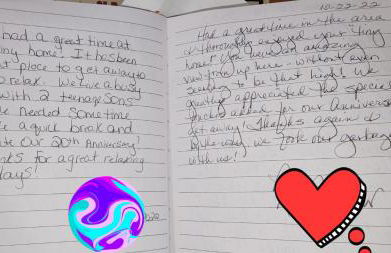 had a great time at
tiny home! It has been
place to get away to
relax. We are a busy
with 2 teenage sons
needed some time
a quick break and
our 20th anniversary!
for a great relaxing
days!
10-22-22
Had a great time in the area
thoroughly enjoyed your tiny
home! You have an amazing
up here - without even
seeming to be that high! We
greatly appreciated the special
added for our Anniversary
get away! Thanks again &
by the way, we took our garbage
with us!